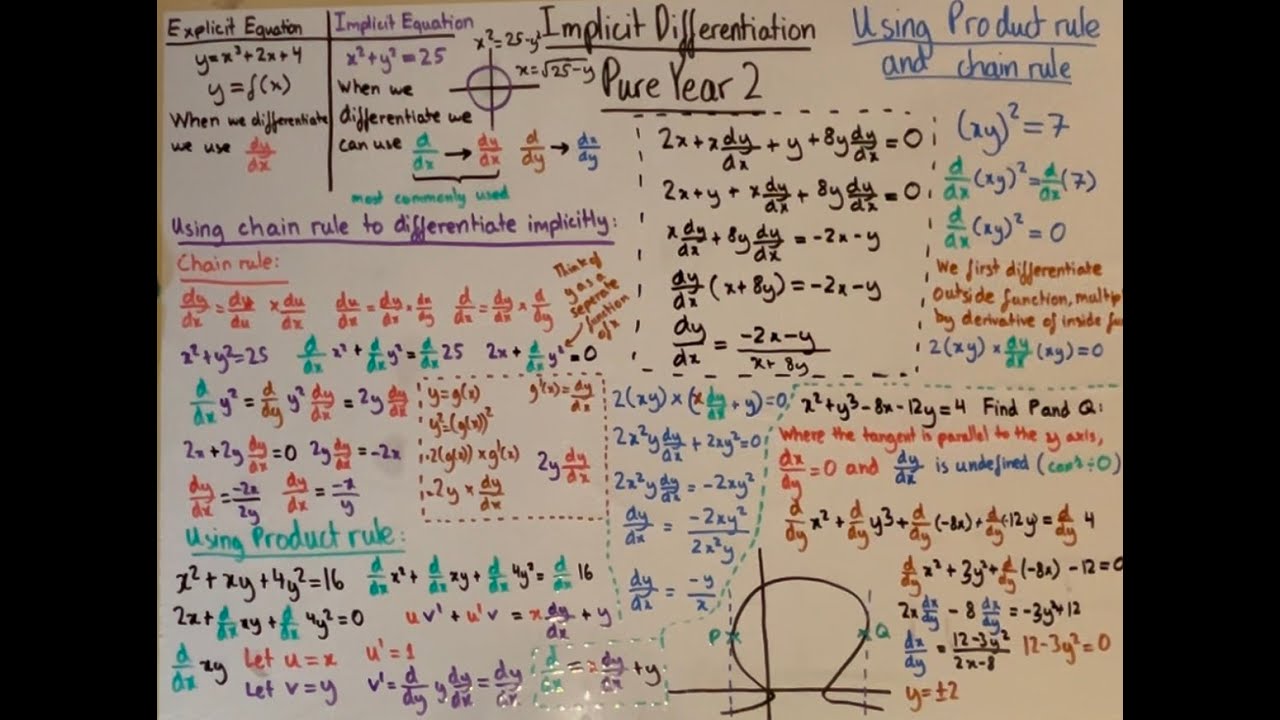 Explicit Equation
y=x³+2x+4
y=f(x)
When we differentiate
we use dy/dx
Implicit Equation
x²+y²=25
When we
differentiate we
can use d/dx → dy/dx d/dy → dx/dy
most commonly used
x²=25-y²
x=√25-y
Implicit Differentiation
Pure Year 2
Using Product rule
and chain rule
Using chain rule to differentiate implicitly:
Chain rule:
dy/dx = dy/du × du/dx du/dx = dy/dx × du/dy d/dx = dy/dx × d/dy
Think of
y as a
seperate
function
of x
x²+y²=25 d/dx x² + d/dx y² = d/dx 25 2x + d/dx y² = 0
d/dx y² = d/dy y² dy/dx = 2y dy/dx
2x+2y dy/dx =0 2y dy/dx = -2x
dy/dx = -2x/2y dy/dx = -x/y
y=g(x) g'(x)= dy/dx
y²=(g(x))²
·2(g(x)) × g'(x)
·2y × dy/dx
2y dy/dx
Using Product rule:
x²+xy+4y²=16 d/dx x² + d/dx xy + d/dx 4y² = d/dx 16
2x + d/dx xy + d/dx 4y² = 0 uv' + u'v = x dy/dx + y
d/dx xy
Let u=x u'=1
Let v=y v'= d/dy y dy/dx = dy/dx
d/dx = x dy/dx + y
2x + x dy/dx + y + 8y dy/dx = 0
2x + y + x dy/dx + 8y dy/dx = 0
x dy/dx + 8y dy/dx = -2x-y
dy/dx (x+8y) = -2x-y
dy/dx = -2x-y/x+8y
(xy)²=7
d/dx (xy)² = d/dx (7)
d/dx (xy)² = 0
We first differentiate
outside function,
by derivative of inside
2(xy) × dy/dx (xy)=0
2(xy) × (x dy/dx + y)=0
2x²y dy/dx + 2xy²=0
2x²y dy/dx = -2xy²
dy/dx = -2xy²/2x²y
dy/dx = -y/x
x²+y³-8x-12y=4 Find P and Q:
Where the tangent is parallel to the y axis,
dx/dy = 0 and dy/dx is undefined (can't ÷0)
d/dy x² + d/dy y³ + d/dy (-8x) + d/dy (-12y) = d/dy 4
d/dy x² + 3y² + d/dy (-8x) -12=0
2x dx/dy - 8 dx/dy = -3y²+12
dx/dy = 12-3y²/2x-8 12-3y²=0
y=±2
P
Q